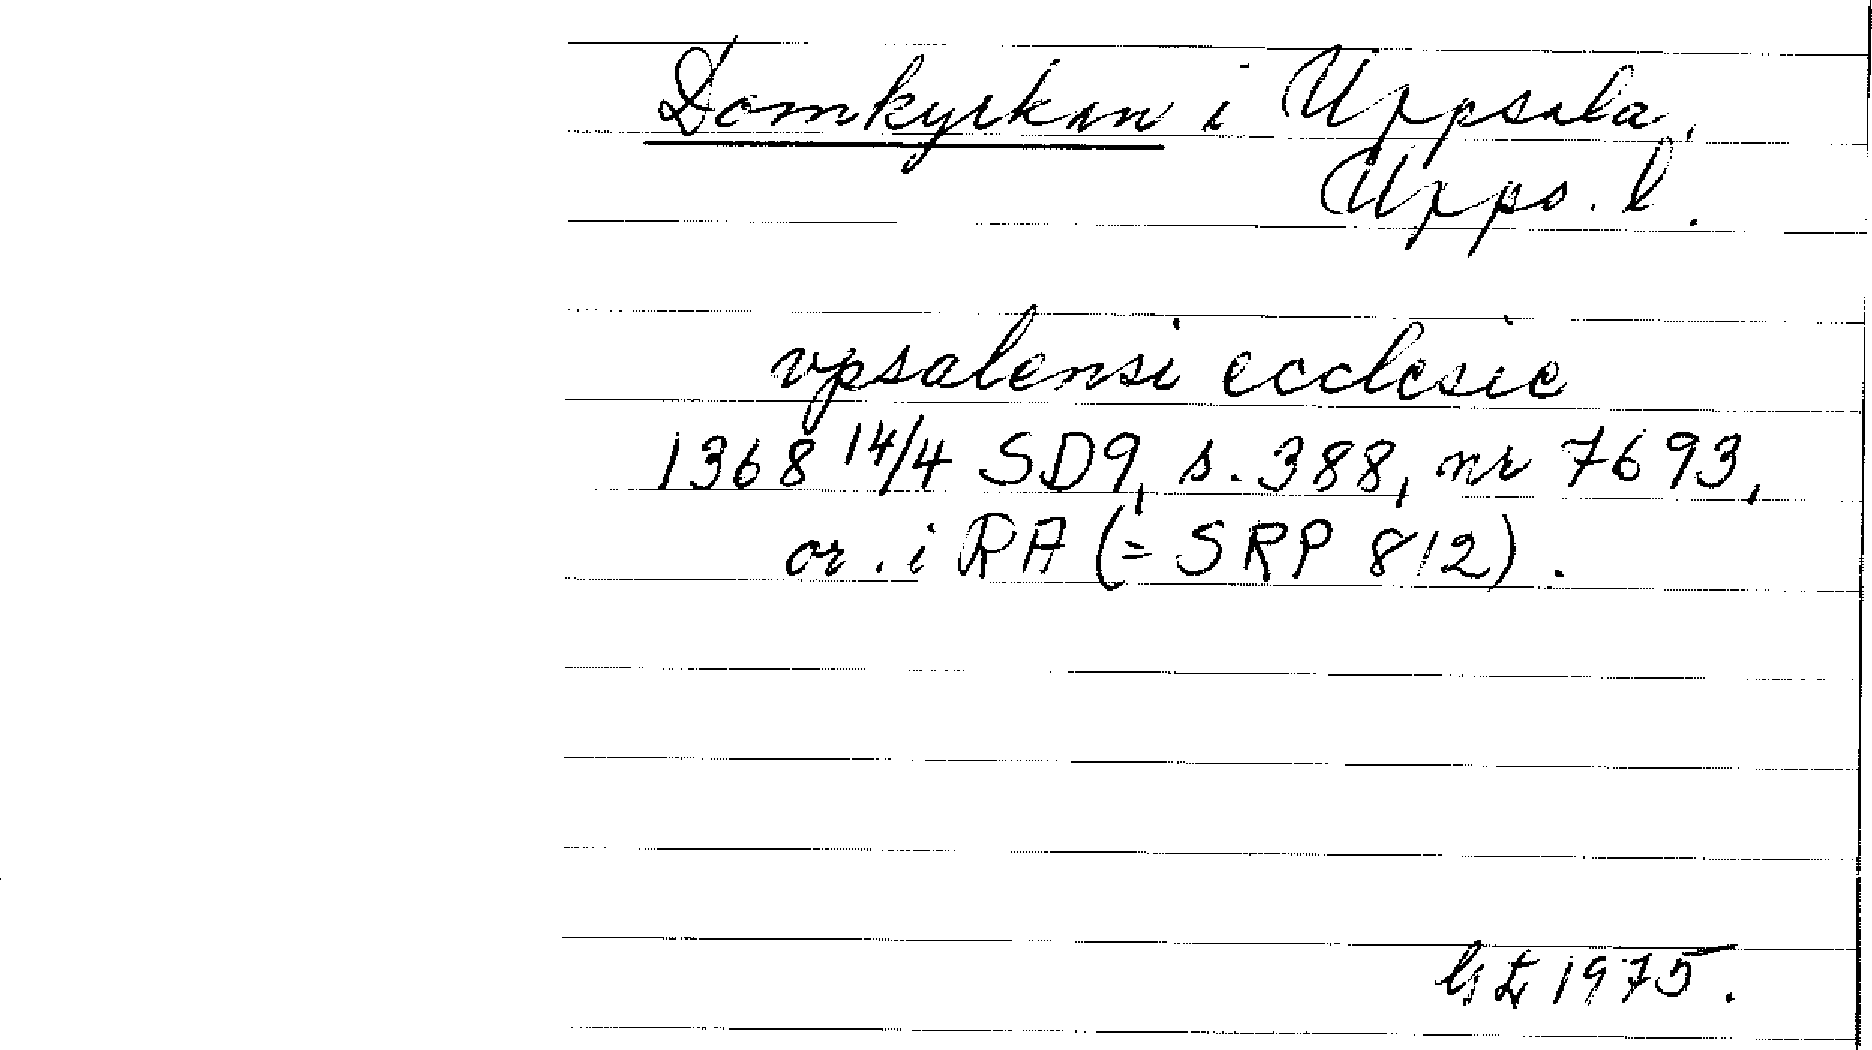 Domkyrkan i Uppsala,
Upps. l.
vpsalensi ecclesie
1368 14/4 SD9, s. 388, nr 7693,
or. i RA (= SRP 812).
1975.